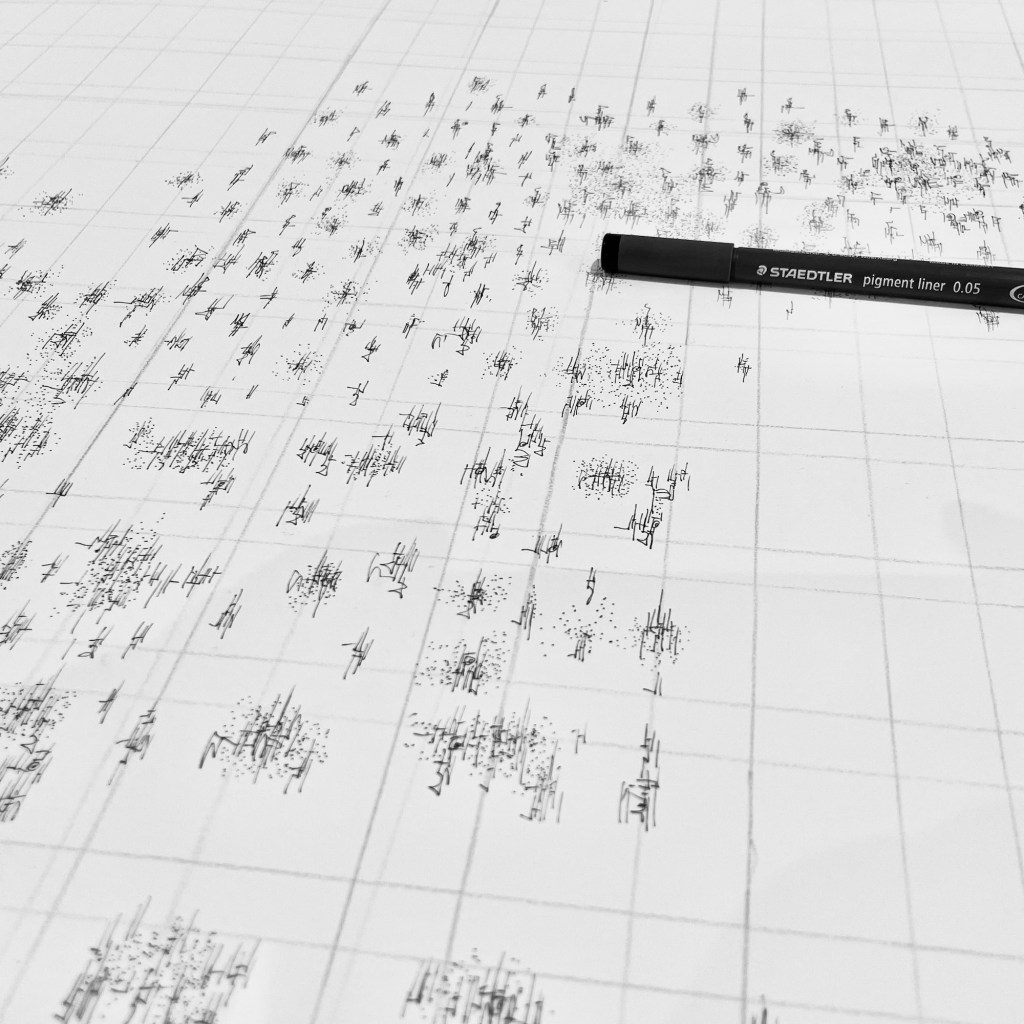 STAEDTLER pigment liner 0.05